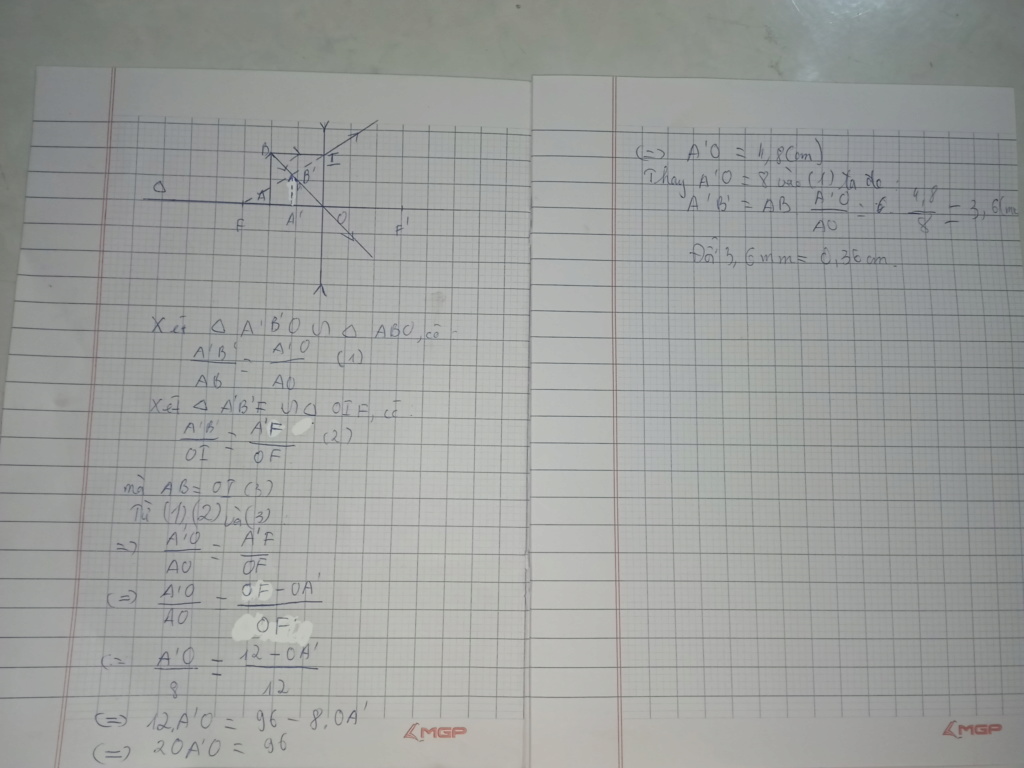 B I
B'
Δ A
F A' O F'
Xét Δ A'B'O ∽ Δ ABO, có:
A'B'/AB = A'O/AO (1)
Xét Δ A'B'F ∽ Δ OIF, có:
A'B'/OI = A'F/OF (2)
mà AB = OI (3)
Từ (1), (2) và (3)
=> A'O/AO = A'F/OF
(=) A'O/AO = OF - OA'/OF
(= A'O/8 = 12 - OA'/12
(=) 12.A'O = 96 - 8.OA'
(=) 20A'O = 96
MGP
(=) A'O = 4,8(cm)
Thay A'O = 8 vào (1) ta đc:
A'B' = AB A'O/AO = 6 4,8/8 = 3,6(m
Đổi 3,6mm = 0,36cm.
MGP